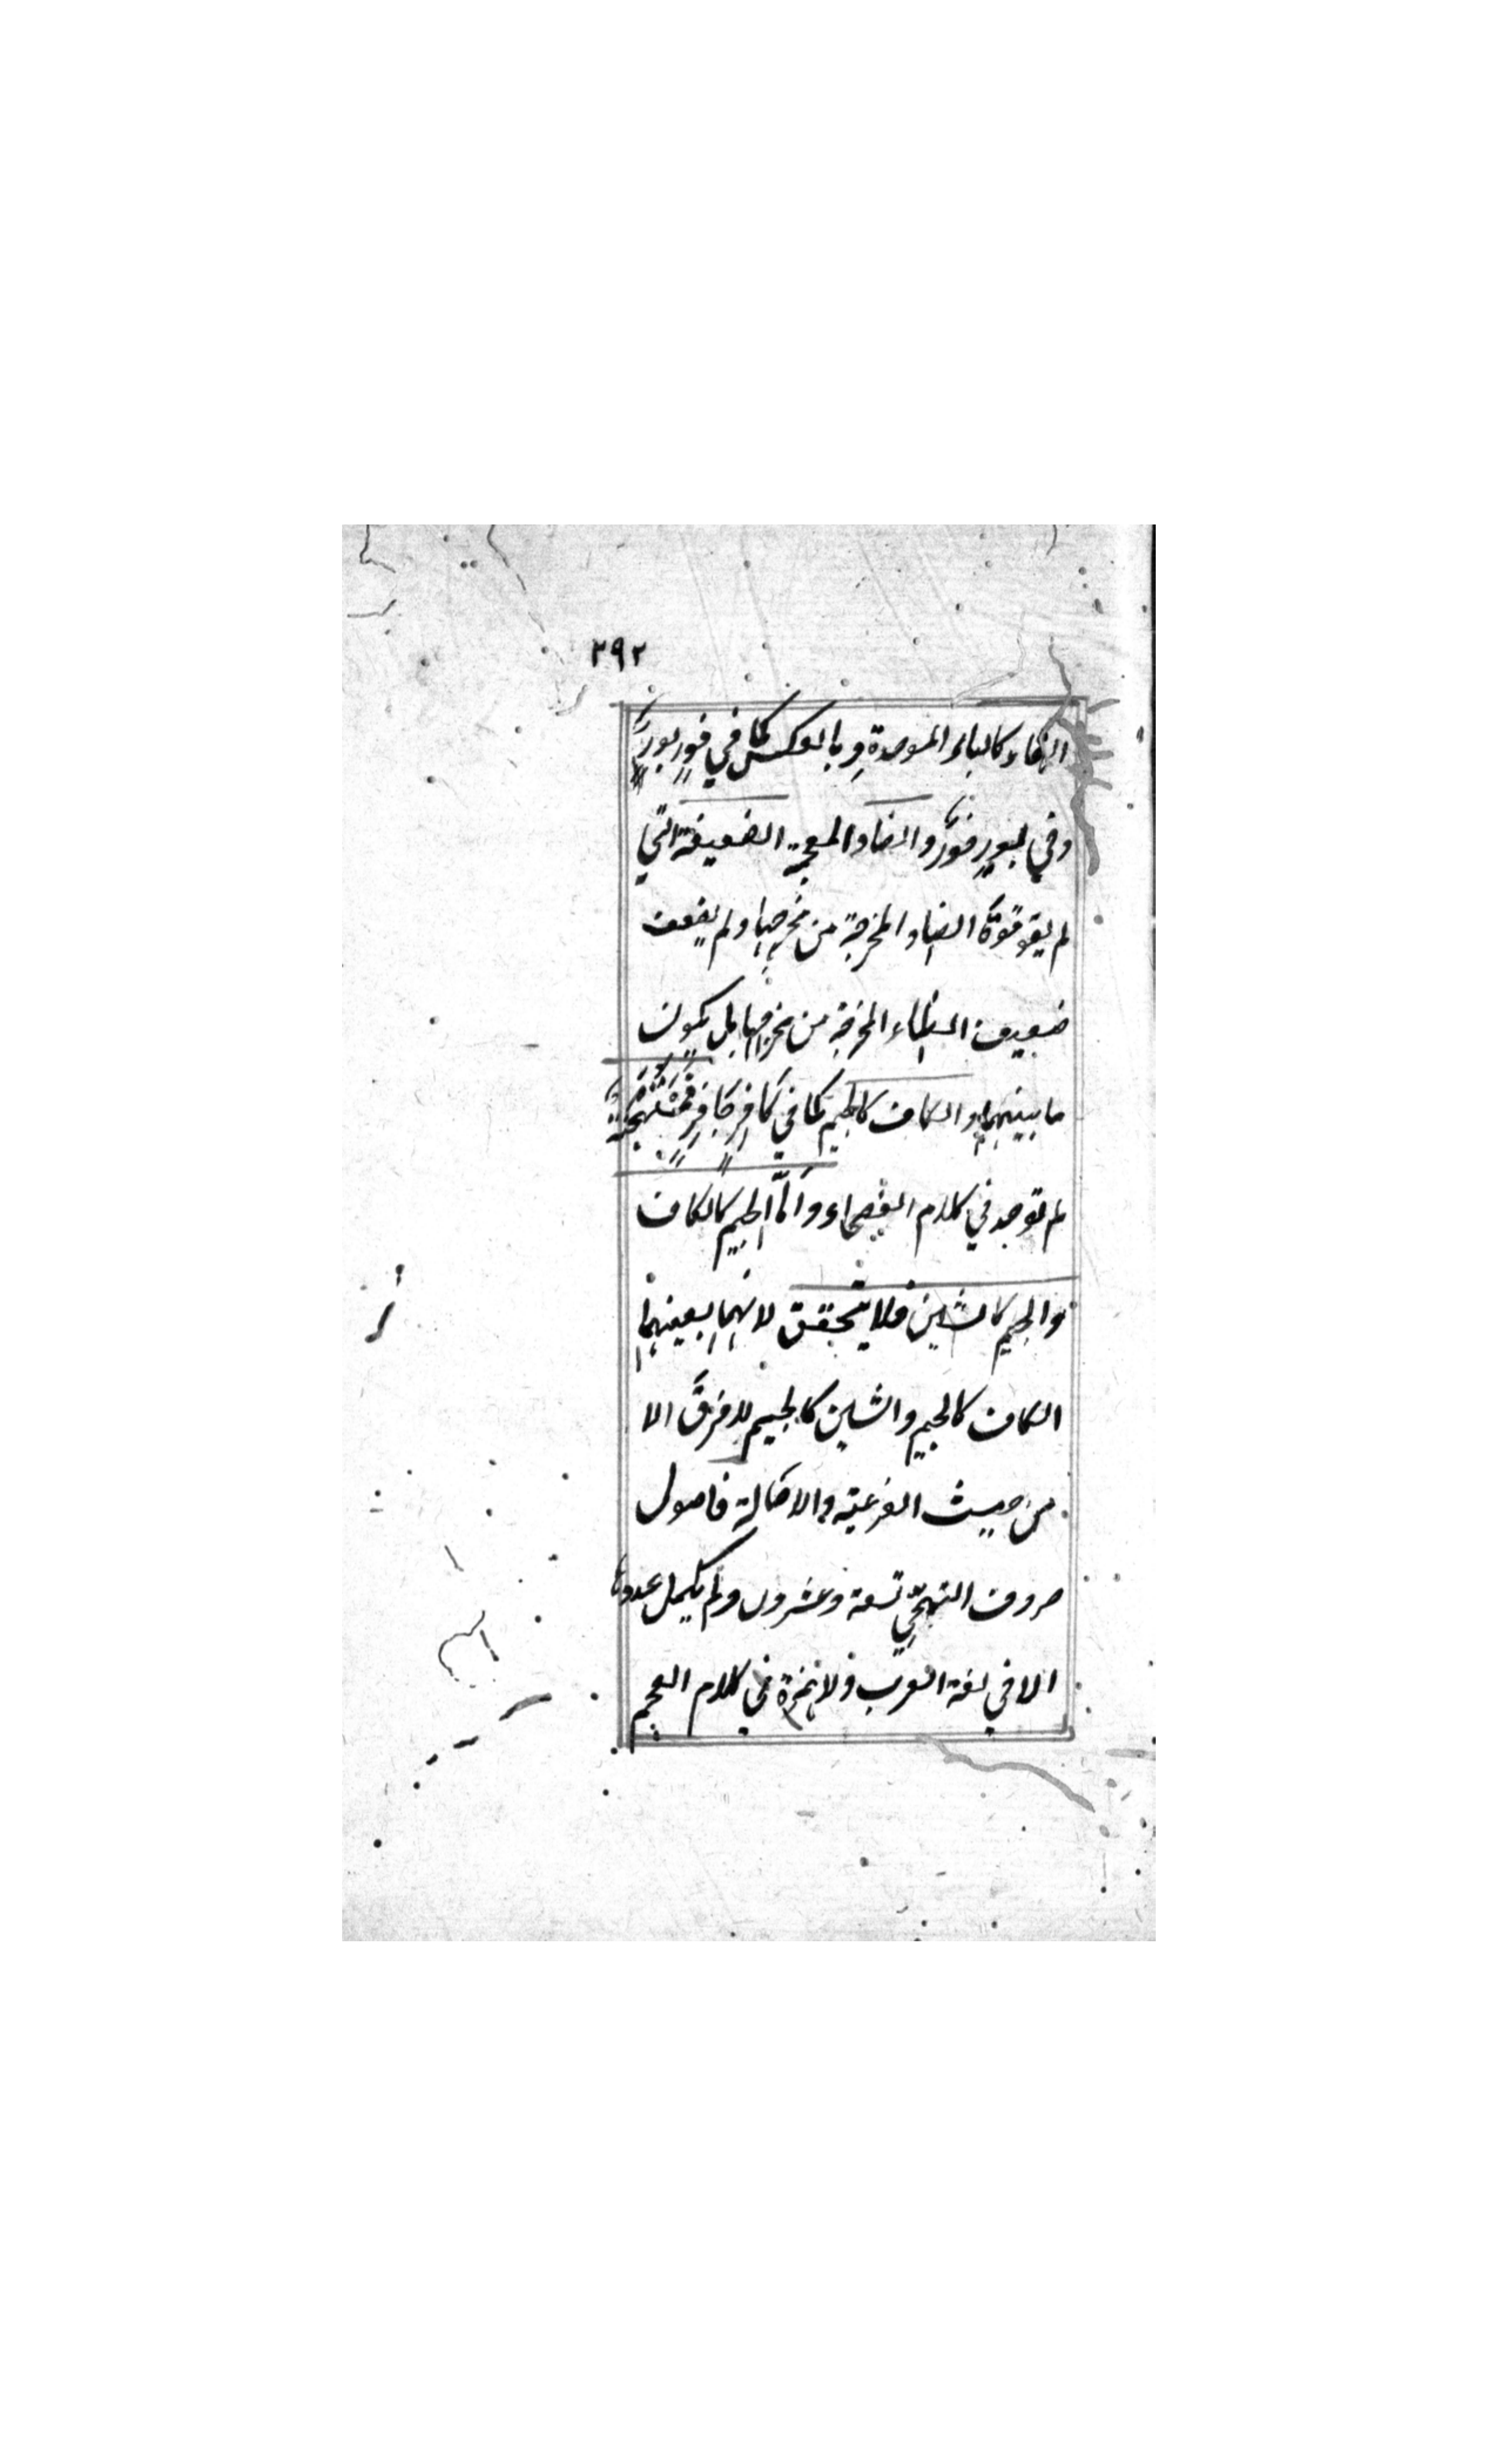 ٢٩٢
الفاء كالباء الموحدة وبالعكس كما في فور بور
وفي بور فور والضاد المعجمة الضعيفة التي
لم يقو قوة الضاد المخرجة من مخرجها ولم يضعف
ضعيف الظاء المخرجة من مخرجها بل يكون
ما بينهما والكاف كالجيم كما في كافر جافر
لم توجد في كلام الفصحاء وأما الجيم كالكاف
والجيم كالشين فلا يتحقق لانهما بعينهما
الكاف كالجيم والشين كالجيم لا فرق الا
من حيث الفرعية والاصالة فاصول
حروف التهجي تسعة وعشرون ولم يكمل عددها
الا في لغة العرب ولا همزة في كلام العجم